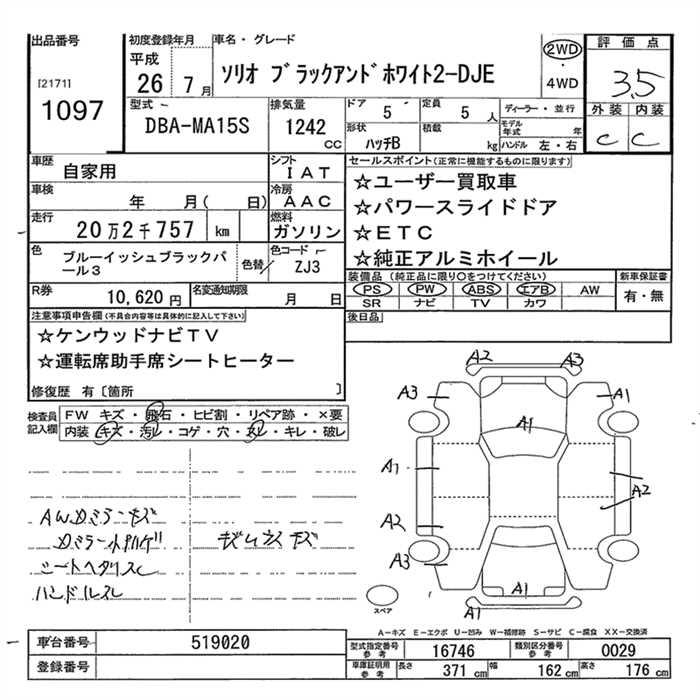 出品番号 初度登録年月 車名・グレード 2WD 評価点
[2171] 平成 26 7月 ソリオ ブラックアンドホワイト2-DJE ・ 4WD 3.5
1097 型式 DBA-MA15S 排気量 1242 CC ドア 5 定員 5 人 ディーラー・並行 外装 内装
形状 ハッチB 積載 kg モデル年式 年 ハンドル 左・右 C C
車歴 自家用 シフト IAT セールスポイント(正常に機能するものに限ります)
車検 年 月( 日) 冷房 AAC ☆ユーザー買取車
走行 20万2千757 km 燃料 ガソリン ☆パワースライドドア
色 ブルーイッシュブラックパール3 色替 色コード ZJ3 ☆ETC
☆純正アルミホイール
R券 10,620円 名変通知期限 月 日 装備品(純正品に限り○をつけてください) 新車保証書
PS PW ABS エアB AW 有・無
SR ナビ TV カワ
注意事項申告欄(不具合内容等は具体的に記入して下さい) 後日品
☆ケンウッドナビTV
☆運転席助手席シートヒーター
修復歴 有〔箇所 〕
検査員記入欄 FW キズ・飛石・ヒビ割・リペア跡・×要
内装 キズ・汚レ・コゲ・穴・スレ・キレ・破レ
A2 A3
A3 A1
A1
A1 A2
A2
A3
A1
A1
スペア
AWカミラーキズ
シートヘタリスレ
ハンドルスレ
A-キズ E-エクボ U-凹み W-補修跡 S-サビ C-腐食 XX-交換済
車台番号 519020 型式指定番号 参考 16746 類別区分番号 参考 0029
登録番号 車庫証明用 参考 長さ 371 cm 幅 162 cm 高さ 176 cm